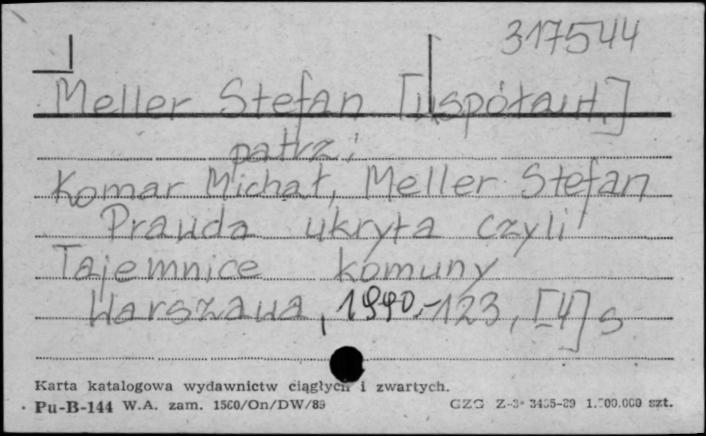 317544
Meller Stefan [współaut.]
patrz:
Komar Michał, Meller Stefan
Prawda ukryta czyli
Tajemnice komuny
Warszawa, 1990.-123, [4] s
Karta katalogowa wydawnictw ciągłych i zwartych.
Pu-B-144 W.A. zam. 1500/On/DW/89 GZG Z-3